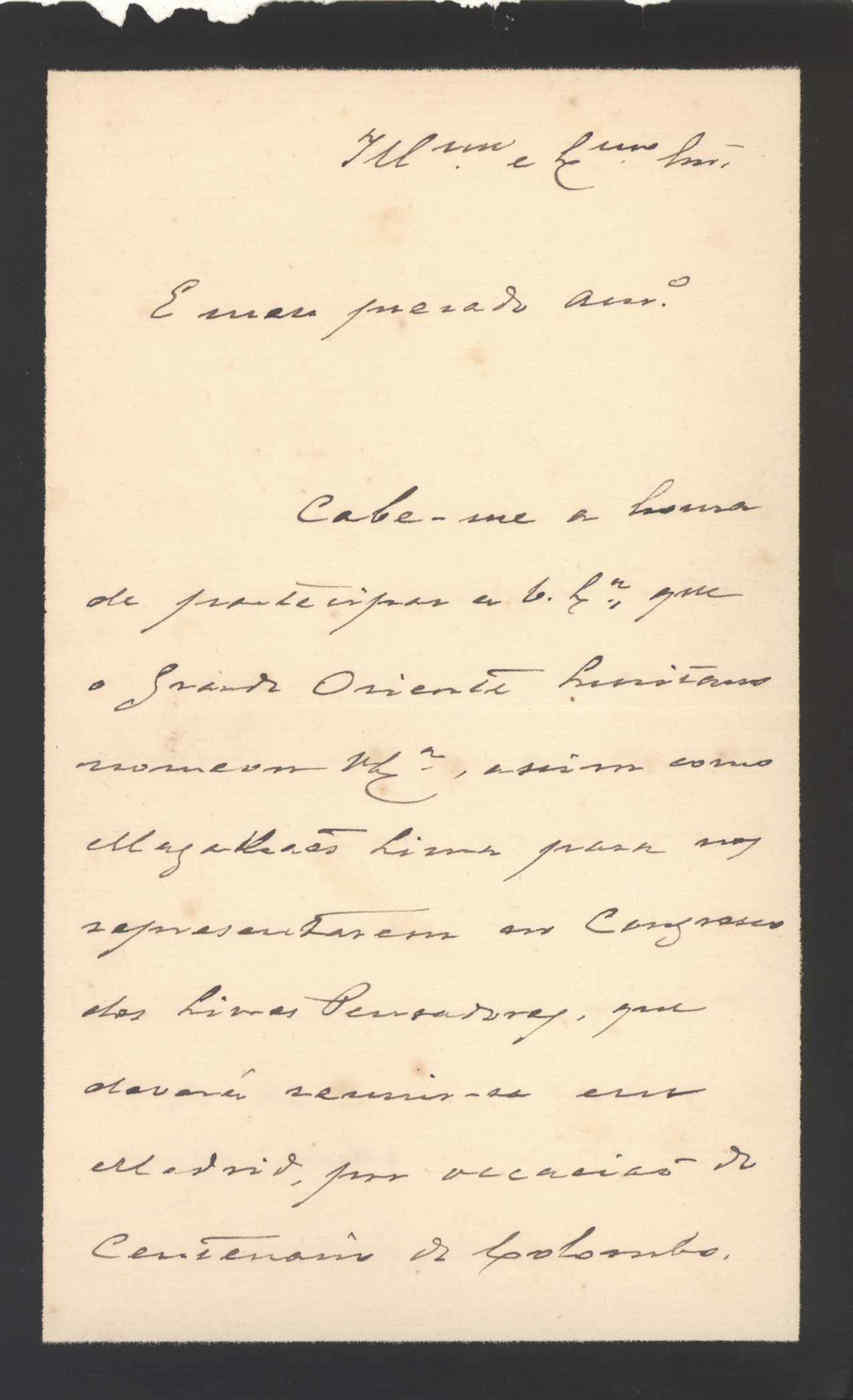 Ill.mo e Ex.mo Snr.
E meu presado Am.o
Cabe-me a honra
de participar a V. Ex.a, que
o Grande Oriente Lusitano
nomeou V Ex.a, assim como
Magalhães Lima para nos
representarem no Congresso
dos Livres Pensadores, que
deverá reunir-se em
Madrid, por occasião do
Centenario de Colombo.